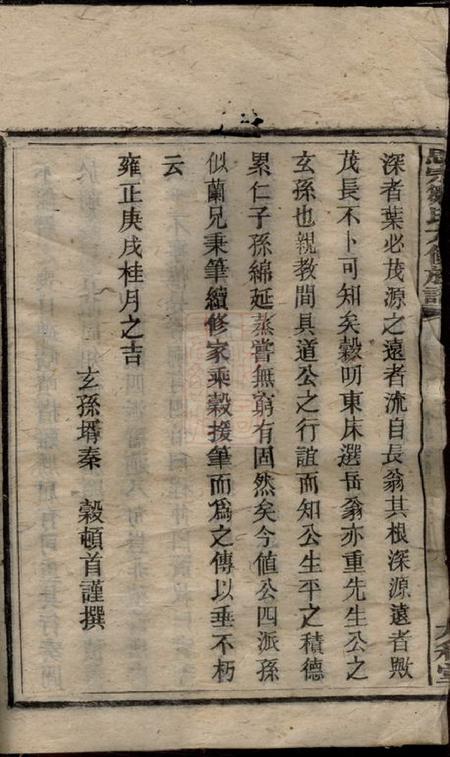 深者葉必茂源之遠者流自長翁其根深源遠者歟
茂長不卜可知矣穀叨東床選岳翁亦重先生公之
玄孫也親教間具道公之行誼而知公生平之積德
累仁子孫綿延蒸嘗無窮有固然矣今値公四派孫
似蘭兄秉筆續修家乘穀援筆而爲之傳以垂不朽
云
雍正庚戌桂月之吉
玄孫壻秦 穀頓首謹撰